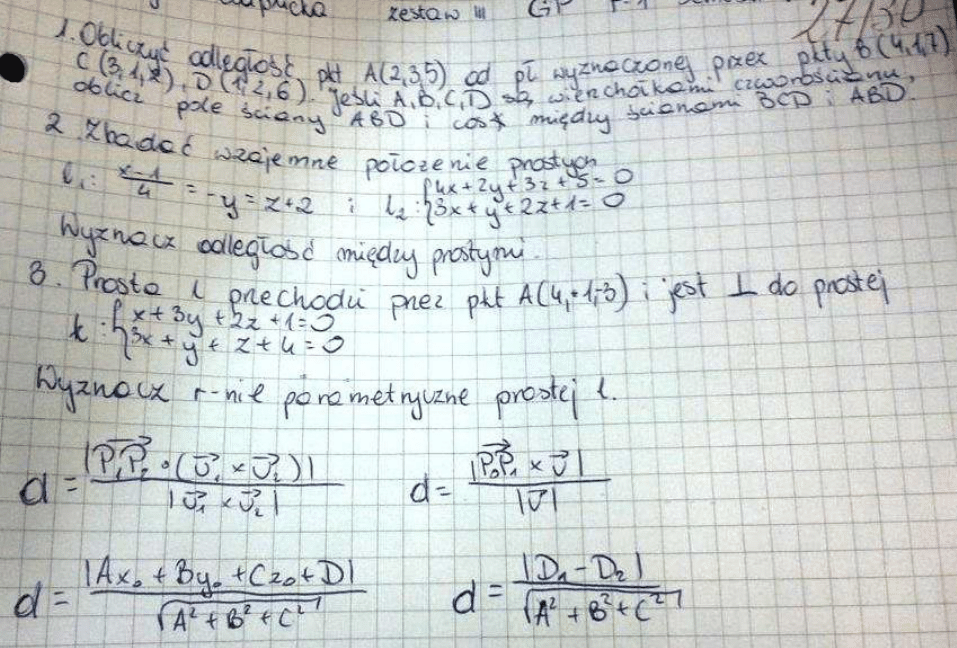 zestaw III
27/30
1. Obliczyć odległość pkt A(2,3,5) od pł wyznaczonej przez pkty B(4,1,7)
C(3,1,2), D(1,2,6). Jeśli A,B,C,D są wierzchołkami czworościanu,
oblicz pole ściany ABD i cos∢ między ścianami BCD i ABD.
2 Zbadać wzajemne położenie prostych
l₁: (x-1)/4 = -y = z+2 i l₂: {4x+2y+3z+5=0
{3x+y+2z+1=0
Wyznacz odległość między prostymi.
3. Prosta l przechodzi przez pkt A(4,-1,-3) i jest ⊥ do prostej
k: {x+3y+2z+1=0
{3x+y+z+4=0
Wyznacz r-nie parametryczne prostej l.
d = |P₁P₂ ∘ (v₁ × v₂)| / |v₁ × v₂| d = |P₀P₁ × v| / |v|
d = |Ax₀ + By₀ + Cz₀ + D| / √(A² + B² + C²) d = |D₁ - D₂| / √(A² + B² + C²)